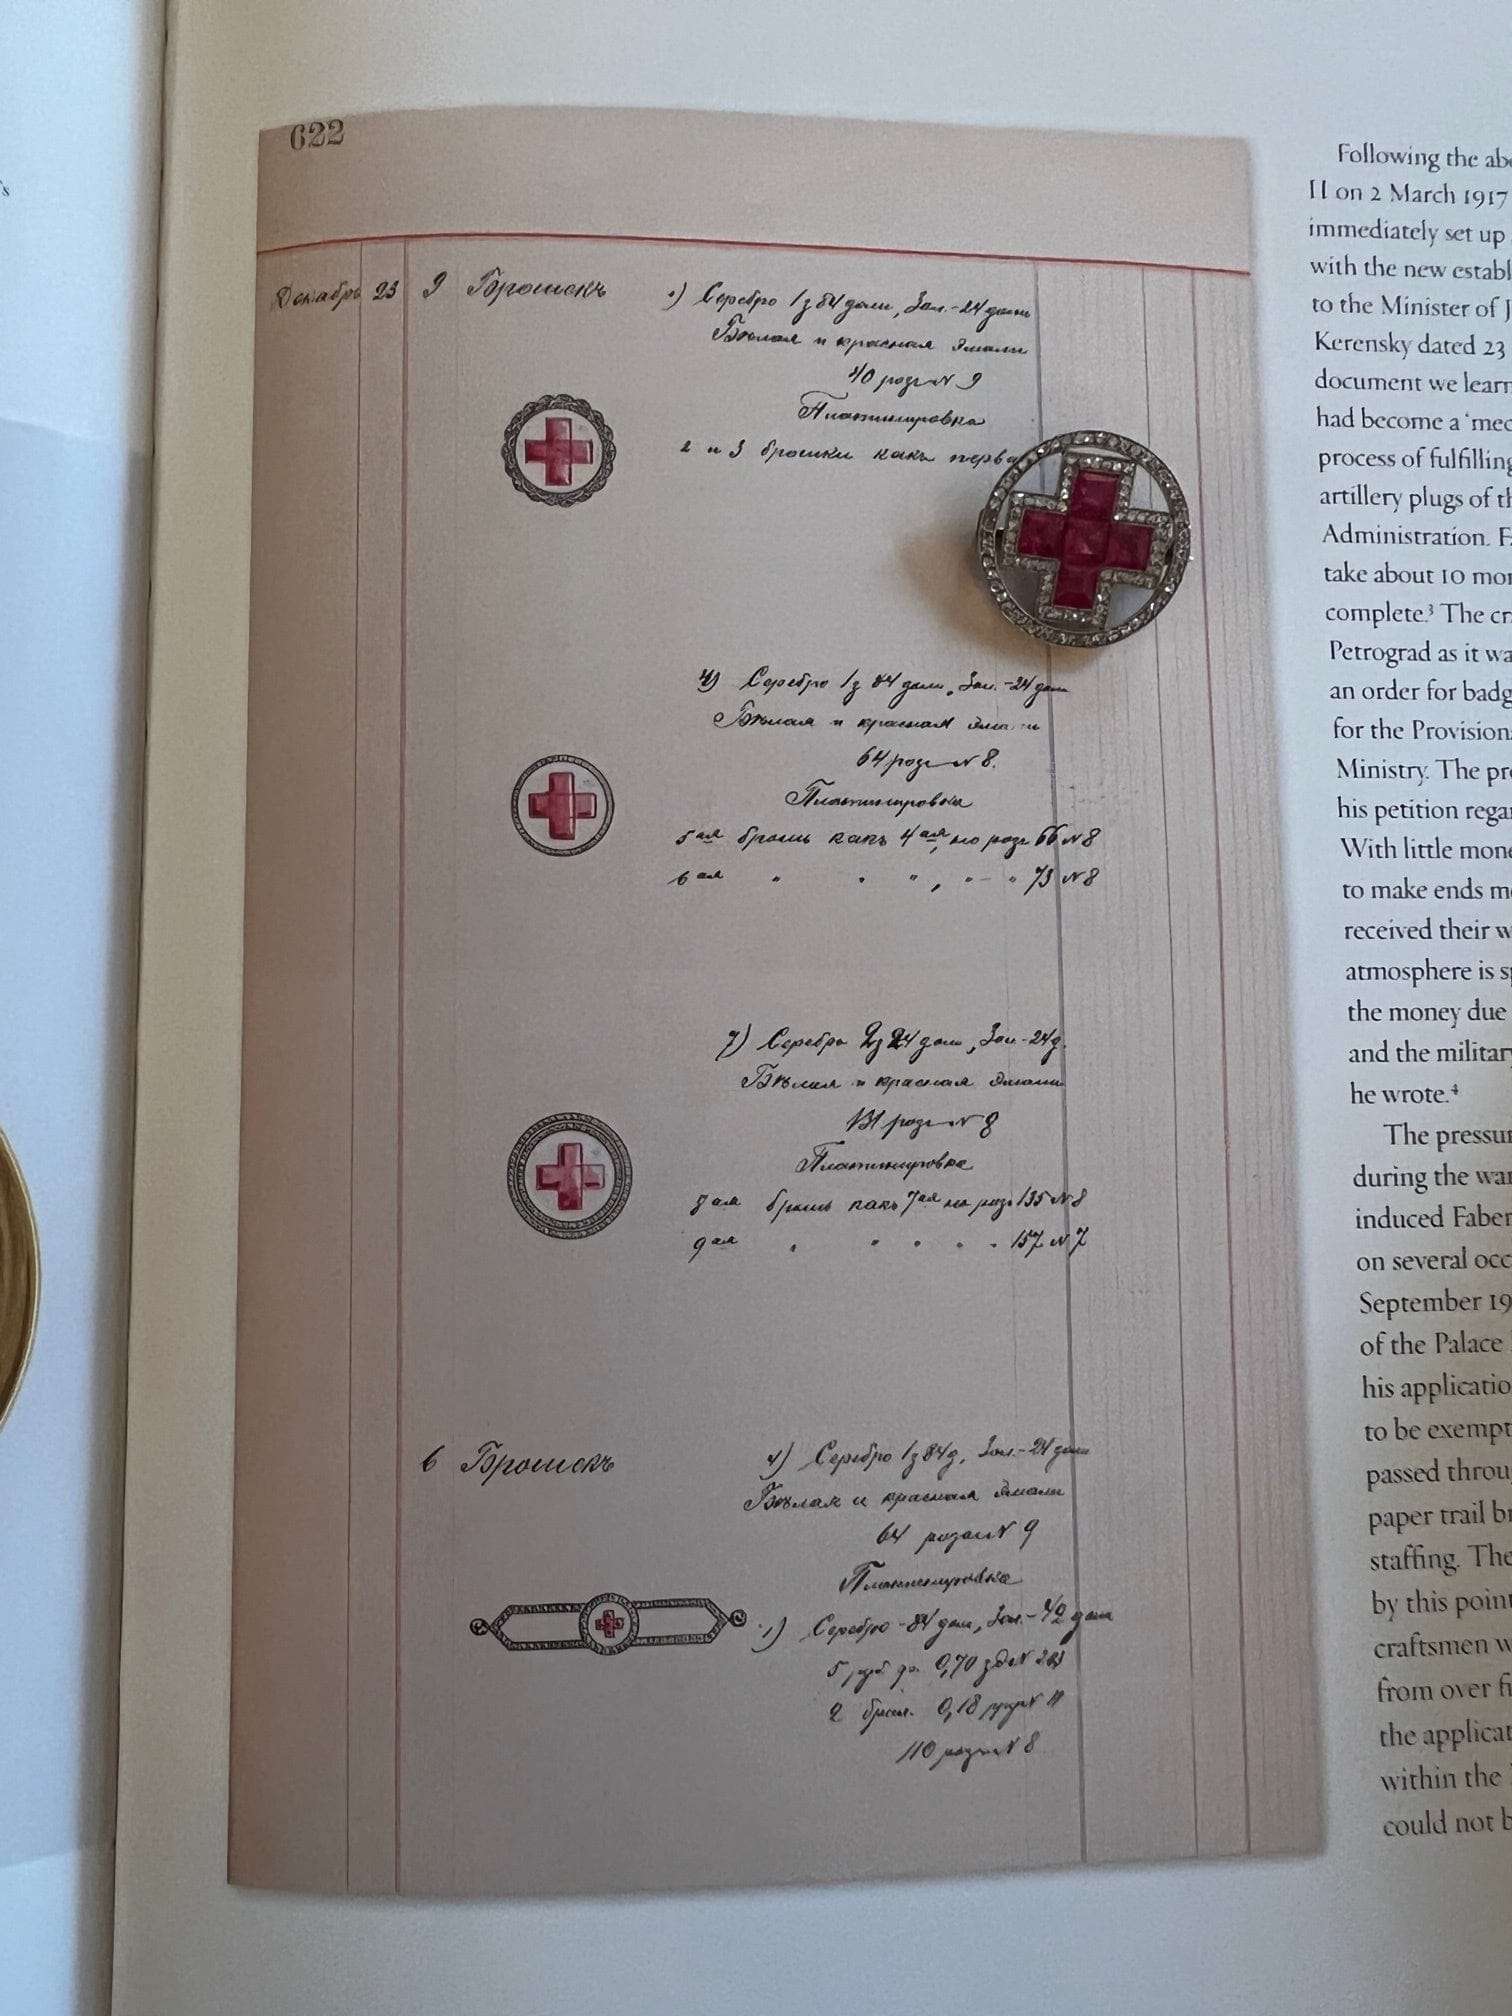 622
Декабрь 23 9 Брошекъ
1) Серебро 1 з 84 доли, Зол.-24 доли
Бѣлая и красная эмали
40 розъ N 9
Платинировка
2 и 3 брошки какъ перва
4) Серебро 1 з 84 доли, Зол.-24 доли
Бѣлая и красная эмали
64 розы N 8.
Платинировка
5ая брошь какъ 4ая, но розъ 66 N 8
6ая " " " , " - " 73 N 8
7) Серебро 2 з 24 доли, Зол-24 д.
Бѣлая и красная эмали
131 роза N 8
Платинировка
8ая брошь какъ 7ая но розъ 135 N 8
9ая " " " " " 157 N 7
6 Брошекъ
Серебро 1 з 84 д, Зол.-24 доли
Бѣлая и красная эмали
64 розы N 9
Платинировка
1) Серебро - 84 доли, Зол.- 42 доли
5 руб 0,70
2 брил. 0,18 N 11
110 розъ N 8
Following the
II on 2 March 1917
immediately set up
with the new
to the Minister of
Kerensky dated 23
document we learn
had become a
process of fulfilling
artillery plugs of
Administration.
take about 10
complete.³ The
Petrograd as it
an order for
for the
Ministry. The
his petition
With little
to make ends
received their
atmosphere is
the money due
and the military
he wrote.⁴
The
during the
induced
on several
September
of the Palace
his
to be
passed
paper trail
staffing. The
by this
craftsmen
from over
the
within the
could not